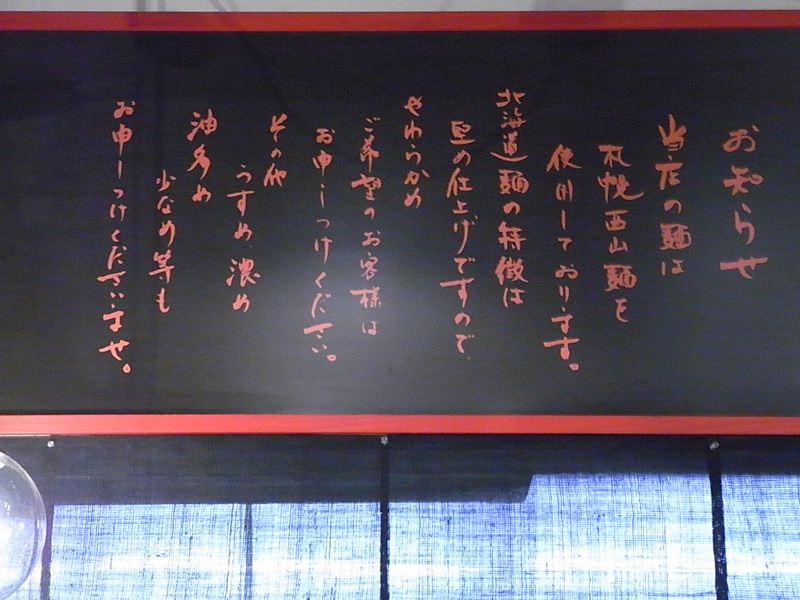 お知らせ
当店の麺は
札幌西山麺を
使用しております。
北海道麺の特徴は
堅め仕上げですので、
やわらかめ
ご希望のお客様は
お申しつけください。
その他
うすめ、濃め
油多め
少なめ等も
お申しつけくださいませ。